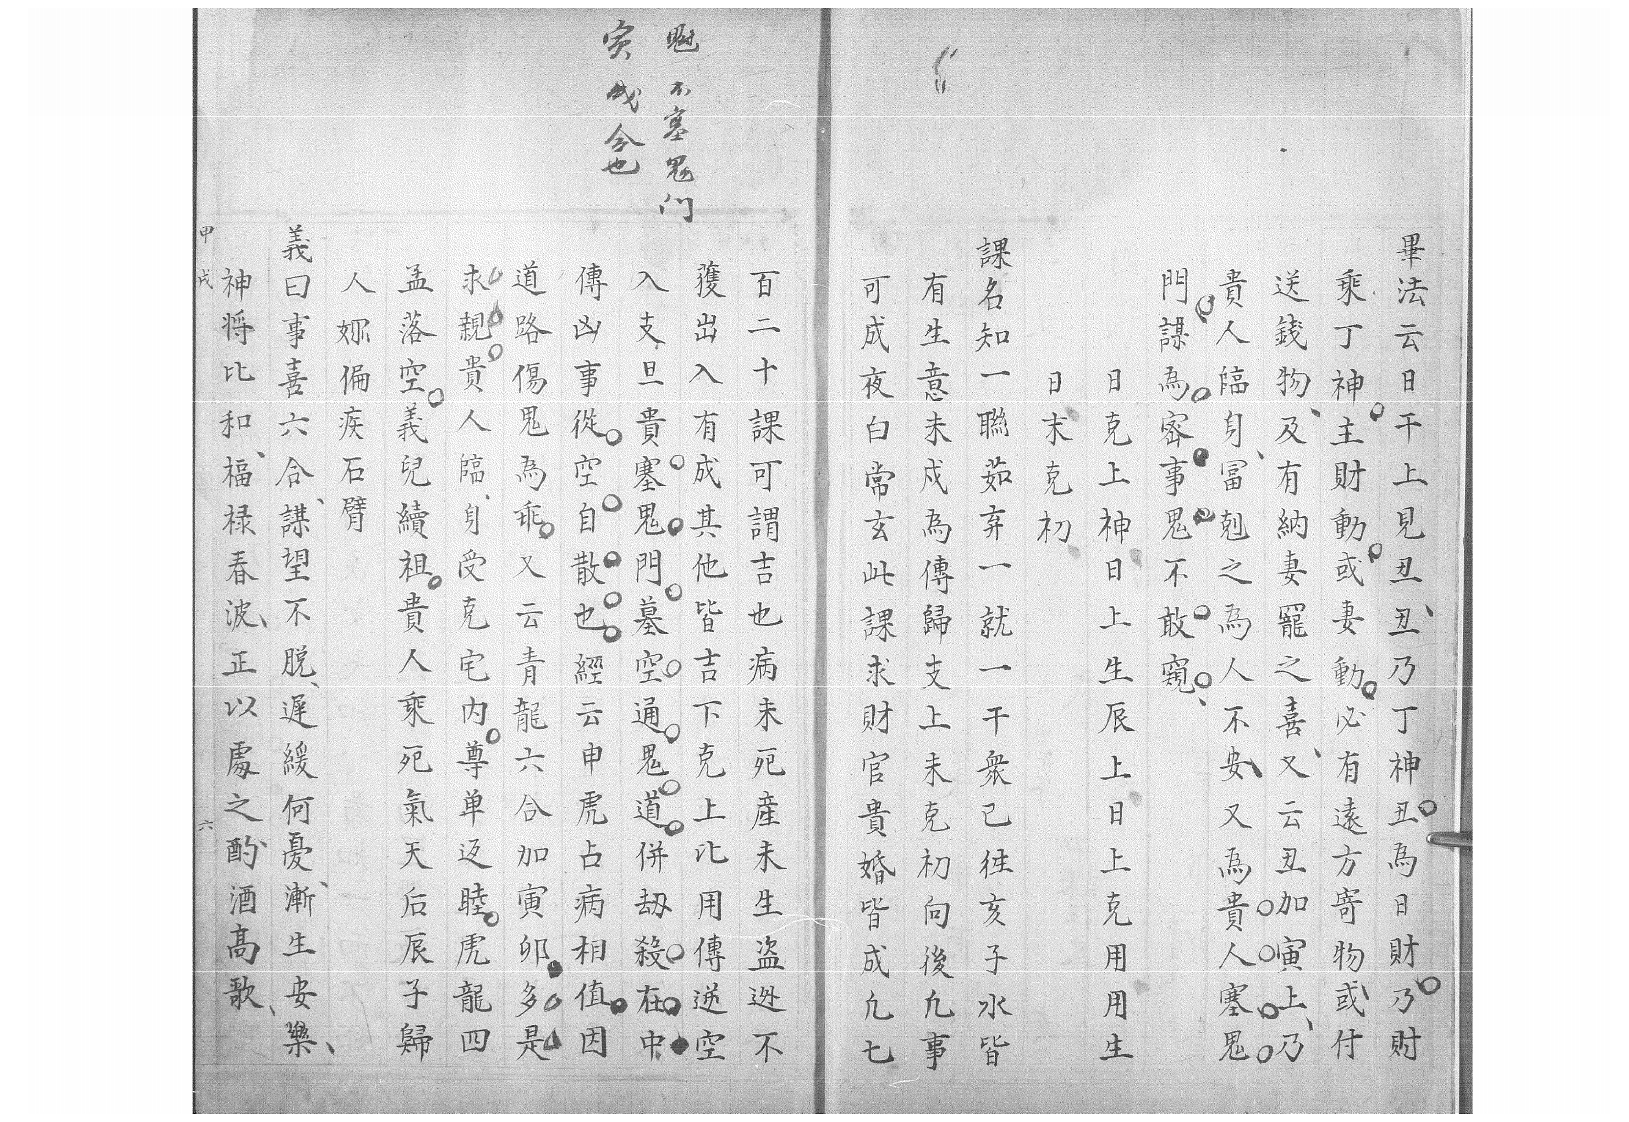 畢法云日干上見丑丑乃丁神丑為日財乃財
乘丁神主財動或妻動必有遠方寄物或付
送錢物及有納妻寵之喜又云丑加寅上乃
貴人臨身冨剋之為人不安又為貴人塞鬼
門謀為密事鬼不敢窺
日克上神日上生辰上日上克用用生
日末克初
課名知一聯茹弃一就一干衆己徃亥子水皆
有生意未戍為傳歸支上末克初向後凢事
可成夜白常玄此課求財官貴婚皆成凢七
百二十課可謂吉也病未死產未生盗迯不
獲出入有成其他皆吉下克上比用傳逆空
入支旦貴塞鬼門墓空通鬼道併劫殺在中
傳凶事從空自散也經云申虎占病相值因
道路傷鬼為乖又云青龍六合加寅卯多是
求親貴人臨身受克宅内尊单返睦虎龍四
孟落空義兒續祖貴人乘死氣天后辰子歸
人妳偏疾石臂
義曰事喜六合謀望不脱遲緩何憂漸生安樂
神将比和福禄春波正以處之酌酒高歌
不塞鬼門
寅戌合也
甲戌
六